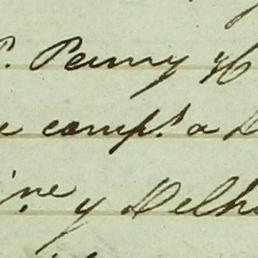 P. Penny H
e comp.^t a D
ine y Delh